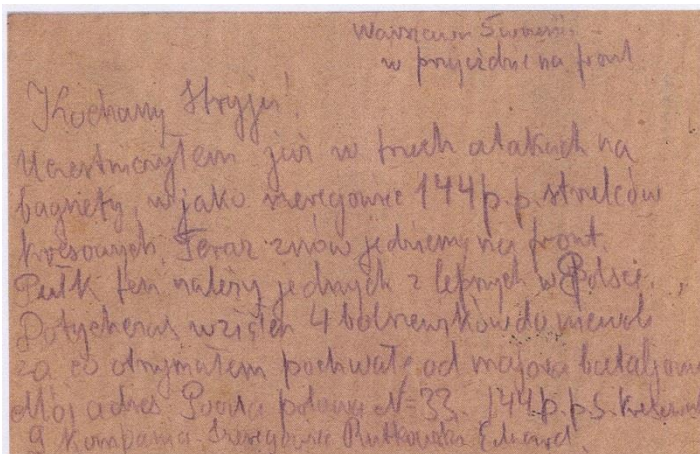 Warszawa
w przejeździe na front
Kochany Stryju!
Uczestniczyłem już w trzech atakach na
bagnety, jako szeregowiec 144 p.p. strzelców
kresowych. Teraz znów jedziemy na front.
Pułk ten należy jednych z lepszych w Polsce.
Dotychczas wziąłem 4 bolszewików do niewoli
za co otrzymałem pochwałę od majora bataljonu
Mój adres Poczta polowa N=33. 144 p.p.S. kresow
9 kompania. Szeregowiec Rutkowski Edward.